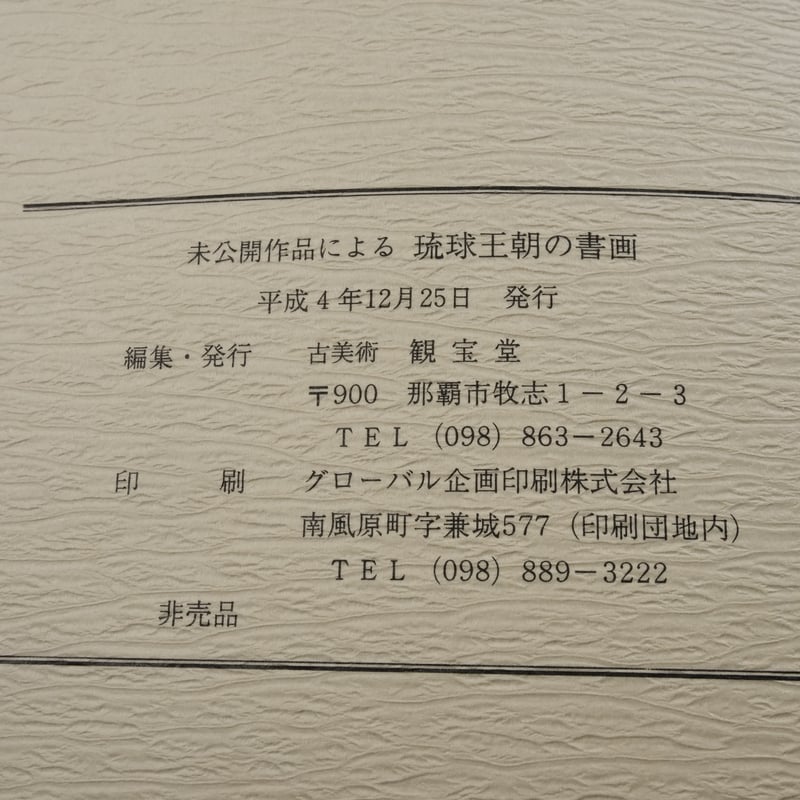 未公開作品による 琉球王朝の書画
平成4年12月25日 発行
編集・発行 古美術 観宝堂
〒900 那覇市牧志1-2-3
TEL (098) 863-2643
印刷 グローバル企画印刷株式会社
南風原町字兼城577 (印刷団地内)
TEL (098) 889-3222
非売品